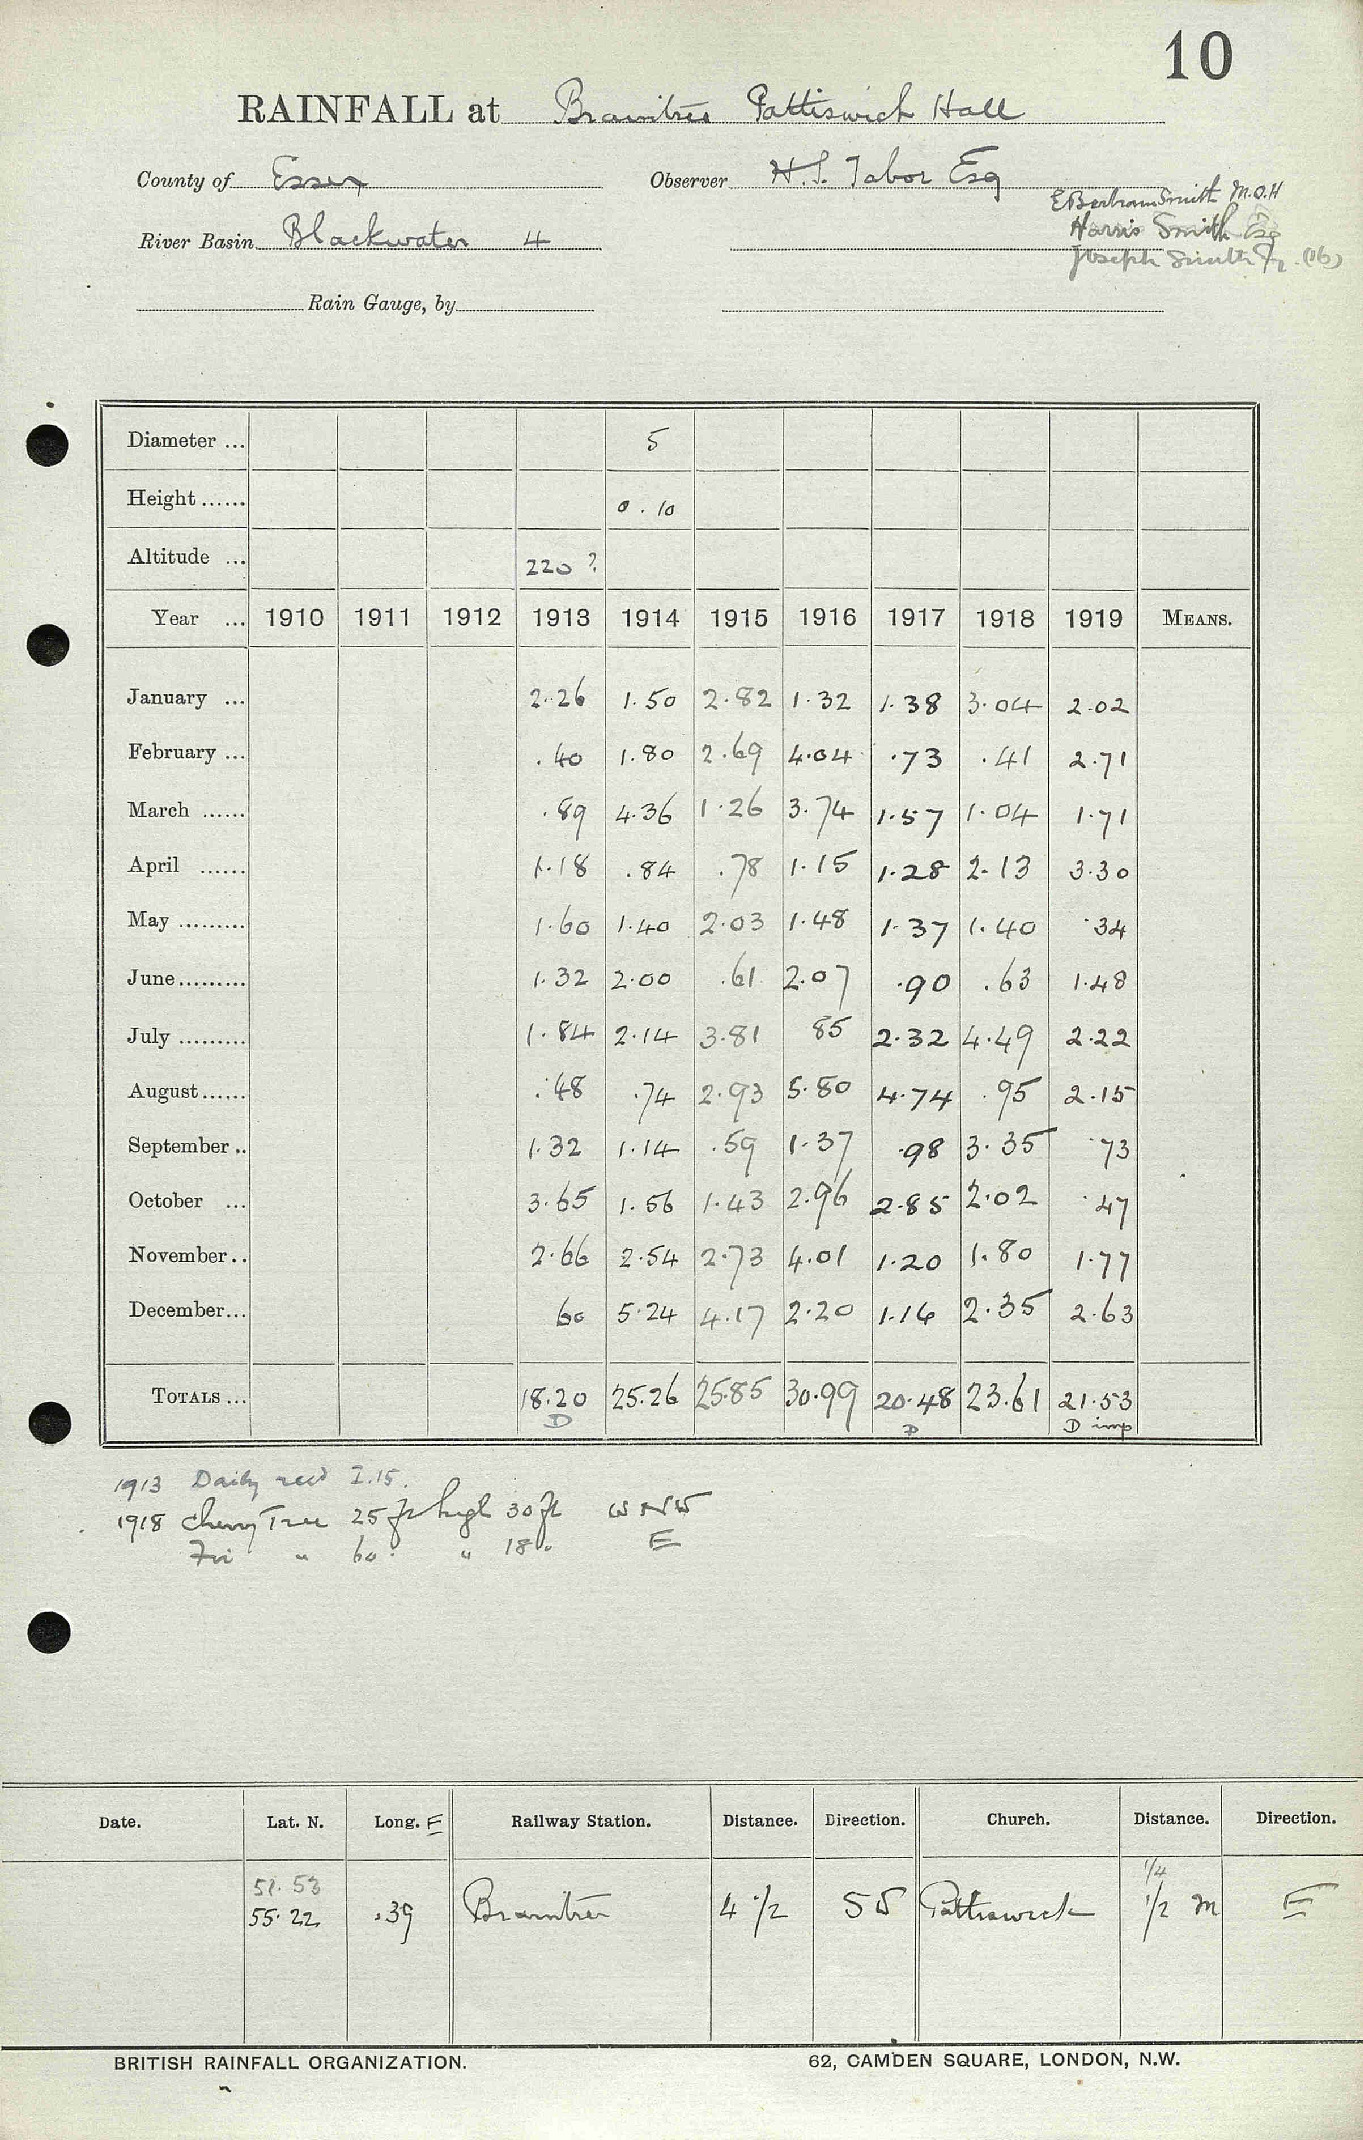 10
RAINFALL at Braintree Pattiswick Hall
County of Essex Observer H. S. Tabor Esq
E Bertram Smith M.O.H
River Basin Blackwater 4 Harris Smith Esq
Joseph Smith Jr. (16)
Rain Gauge, by
Diameter ... 5
Height ...... 0.10
Altitude ... 220 ?
Year ... 1910 1911 1912 1913 1914 1915 1916 1917 1918 1919 MEANS.
January ... 2.26 1.50 2.82 1.32 1.38 3.04 2.02
February ... .40 1.80 2.69 4.04 .73 .41 2.71
March ...... .89 4.36 1.26 3.74 1.57 1.04 1.71
April ...... 1.18 .84 .78 1.15 1.28 2.13 3.30
May ......... 1.60 1.40 2.03 1.48 1.37 1.40 .34
June......... 1.32 2.00 .61 2.07 .90 .63 1.48
July ......... 1.84 2.14 3.81 85 2.32 4.49 2.22
August...... .48 .74 2.93 5.80 4.74 .95 2.15
September .. 1.32 1.14 .59 1.37 .98 3.35 .73
October ... 3.65 1.56 1.43 2.96 2.85 2.02 .47
November.. 2.66 2.54 2.73 4.01 1.20 1.80 1.77
December... 60 5.24 4.17 2.20 1.16 2.35 2.63
TOTALS ... 18.20 25.26 25.85 30.99 20.48 23.61 21.53
D D D imp
1913 Daily recd I.15.
1918 Cherry Tree 25 ft high 30 ft W NW
Fir " 60 " 18 " E
Date. Lat. N. Long. E Railway Station. Distance. Direction. Church. Distance. Direction.
51.53 1/4
55.22 .39 Braintree 4 1/2 SW Pattiswick 1/2 m E
BRITISH RAINFALL ORGANIZATION. 62, CAMDEN SQUARE, LONDON, N.W.